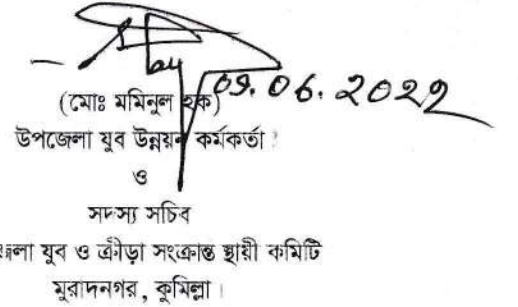 ০৭.০৬.২০২২
(মোঃ মমিনুল হক)
উপজেলা যুব উন্নয়ন কর্মকর্তা
ও
সদস্য সচিব
জেলা যুব ও ক্রীড়া সংক্রান্ত স্থায়ী কমিটি
মুরাদনগর, কুমিল্লা।